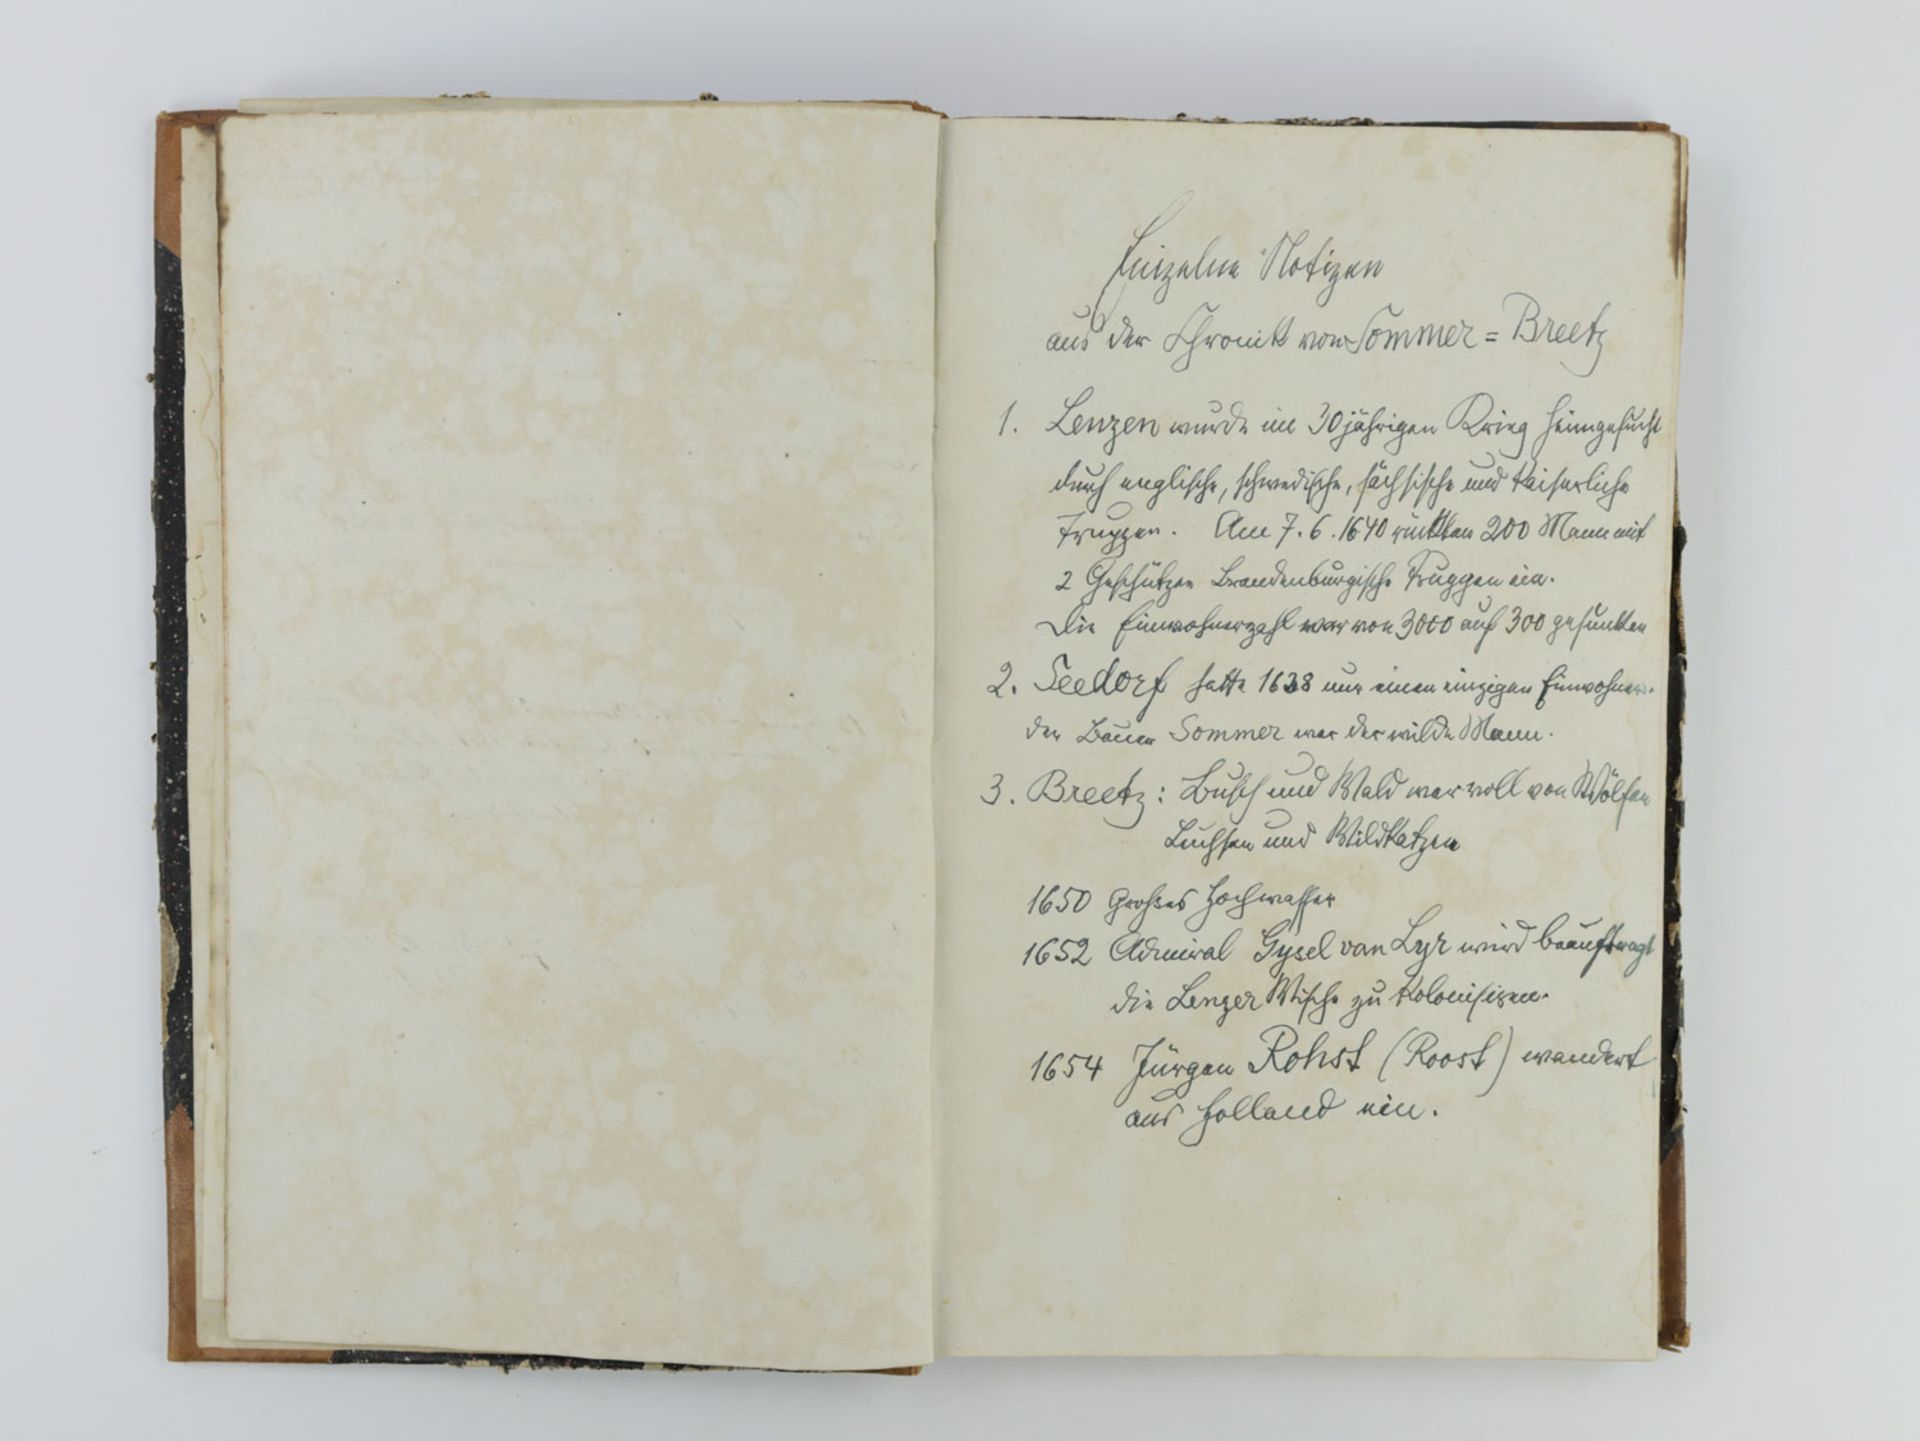 Einzelne Notizen
aus der Chronik von Sommer = Breetz
1. Lenzen wurde im 30jährigen Krieg heimgesucht
durch englische, schwedische, sächsische und kaiserliche
Truppen. Am 7.6.1640 rückten 200 Mann mit
2 Geschützen Brandenburgische Truppen ein.
Die Einwohnerzahl war von 3000 auf 300 gesunken
2. Seedorf hatte 1638 nur einen einzigen Einwohner.
der Bauer Sommer war der wilde Mann.
3. Breetz: Busch und Wald war voll von Wölfen
Luchsen und Wildkatzen
1650 Großes Hochwasser
1652 Admiral Gysel van Lyr wird beauftragt
die Lenzer Wische zu kolonisieren.
1654 Jürgen Rohst (Roost) wandert
aus Holland ein.